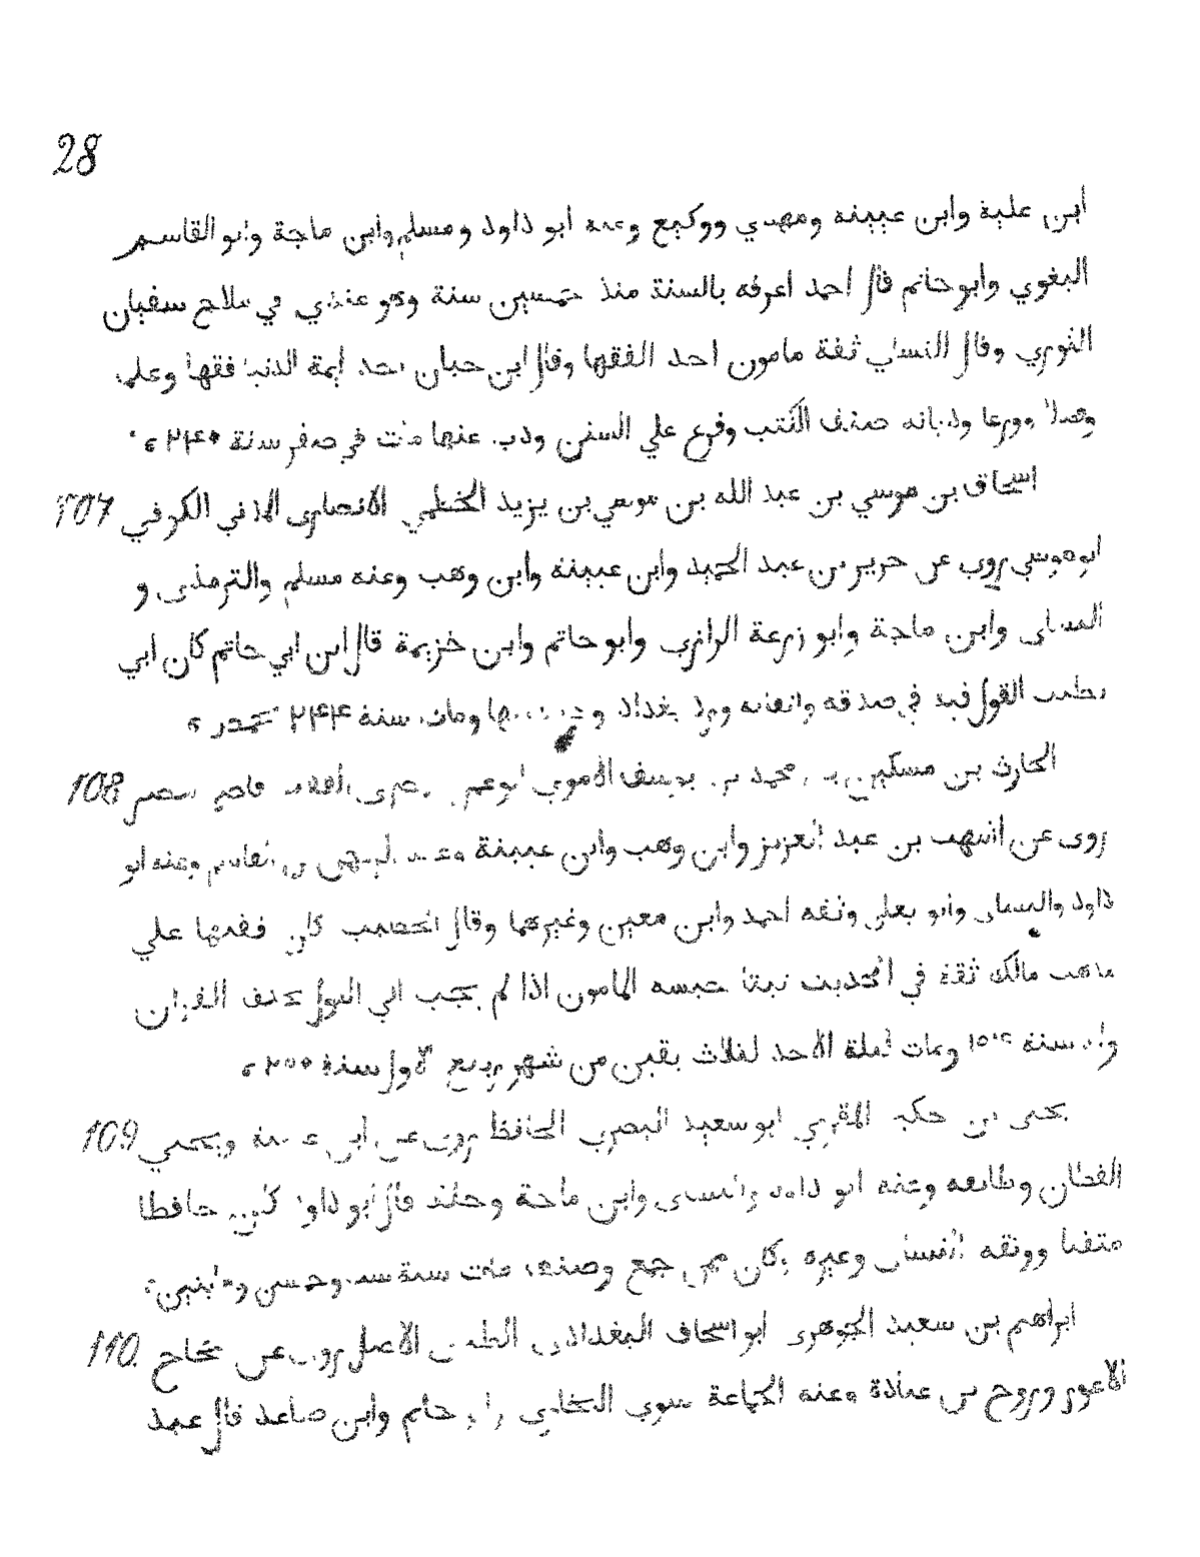 28
ابن علية وابن عيينه ومهدي ووكيع وعنه ابو داود ومسلم وابن ماجة وابو القاسم
البغوي وابو حاتم قال احمد اعرفه بالسنة منذ خمسين سنة وهو عندي في سلاح سفيان
الثوري وقال النسائ ثقة مامون احد الفقها وقال ابن حبان احد ايمة الدنيا فقها وعلما
وفضلا وورعا وديانه صنف الكتب وفرع علي السنن وذب عنها مات في صفر سنة ٢٤٠
107 اسحاق بن موسي بن عبد الله بن موسي بن يزيد الخطمي الانصارى المدني الكوفي
ابو موسي روى عن جرير بن عبد الحميد وابن عيينه وابن وهب وعنه مسلم والترمذى و
النساى وابن ماجة وابو زرعة الرازى وابو حاتم وابن خزيمة قال ابن ابي حاتم كان ابي
يطنب القول فيه في صدقه واتقانه ورد بغداد وحدث بها ومات سنة ٢٤٤
108 الحارث بن مسكين بن محمد بن يوسف الاموي ابو عمر قاضي مصر
روى عن اشهب بن عبد العزيز وابن وهب وابن عيينة وعبد الرحمن بن القاسم وعنه ابو
داود والنساى وابو يعلى وثقه احمد وابن معين وغيرهما وقال الخطيب كان فقيها علي
مذهب مالك ثقة في الحديث ثبتا حبسه المامون اذا لم يجب الي القول بخلق القران
ولد سنة ١٥٤ ومات ليلة الاحد لثلاث بقين من شهر ربيع الاول سنة ٢٥٠
109 يحيى بن حكيم المقري ابو سعيد البصرى الحافظ روى عن ابن عيينة ويحيي
القطان وطايفه وعنه ابو داود والنسى وابن ماجة وخلق قال ابو داود كان حافظا
متقنا ووثقه النسائ وغيره وكان ممن جمع وصنف مات سنة ست وخمسين ومايتين
110 ابراهيم بن سعيد الجوهرى ابو اسحاق البغدادى الاصل روى عن حجاج
الاعور وروح بن عبادة وعنه الجماعة سوي البخاري وابو حاتم وابن صاعد قال عبد